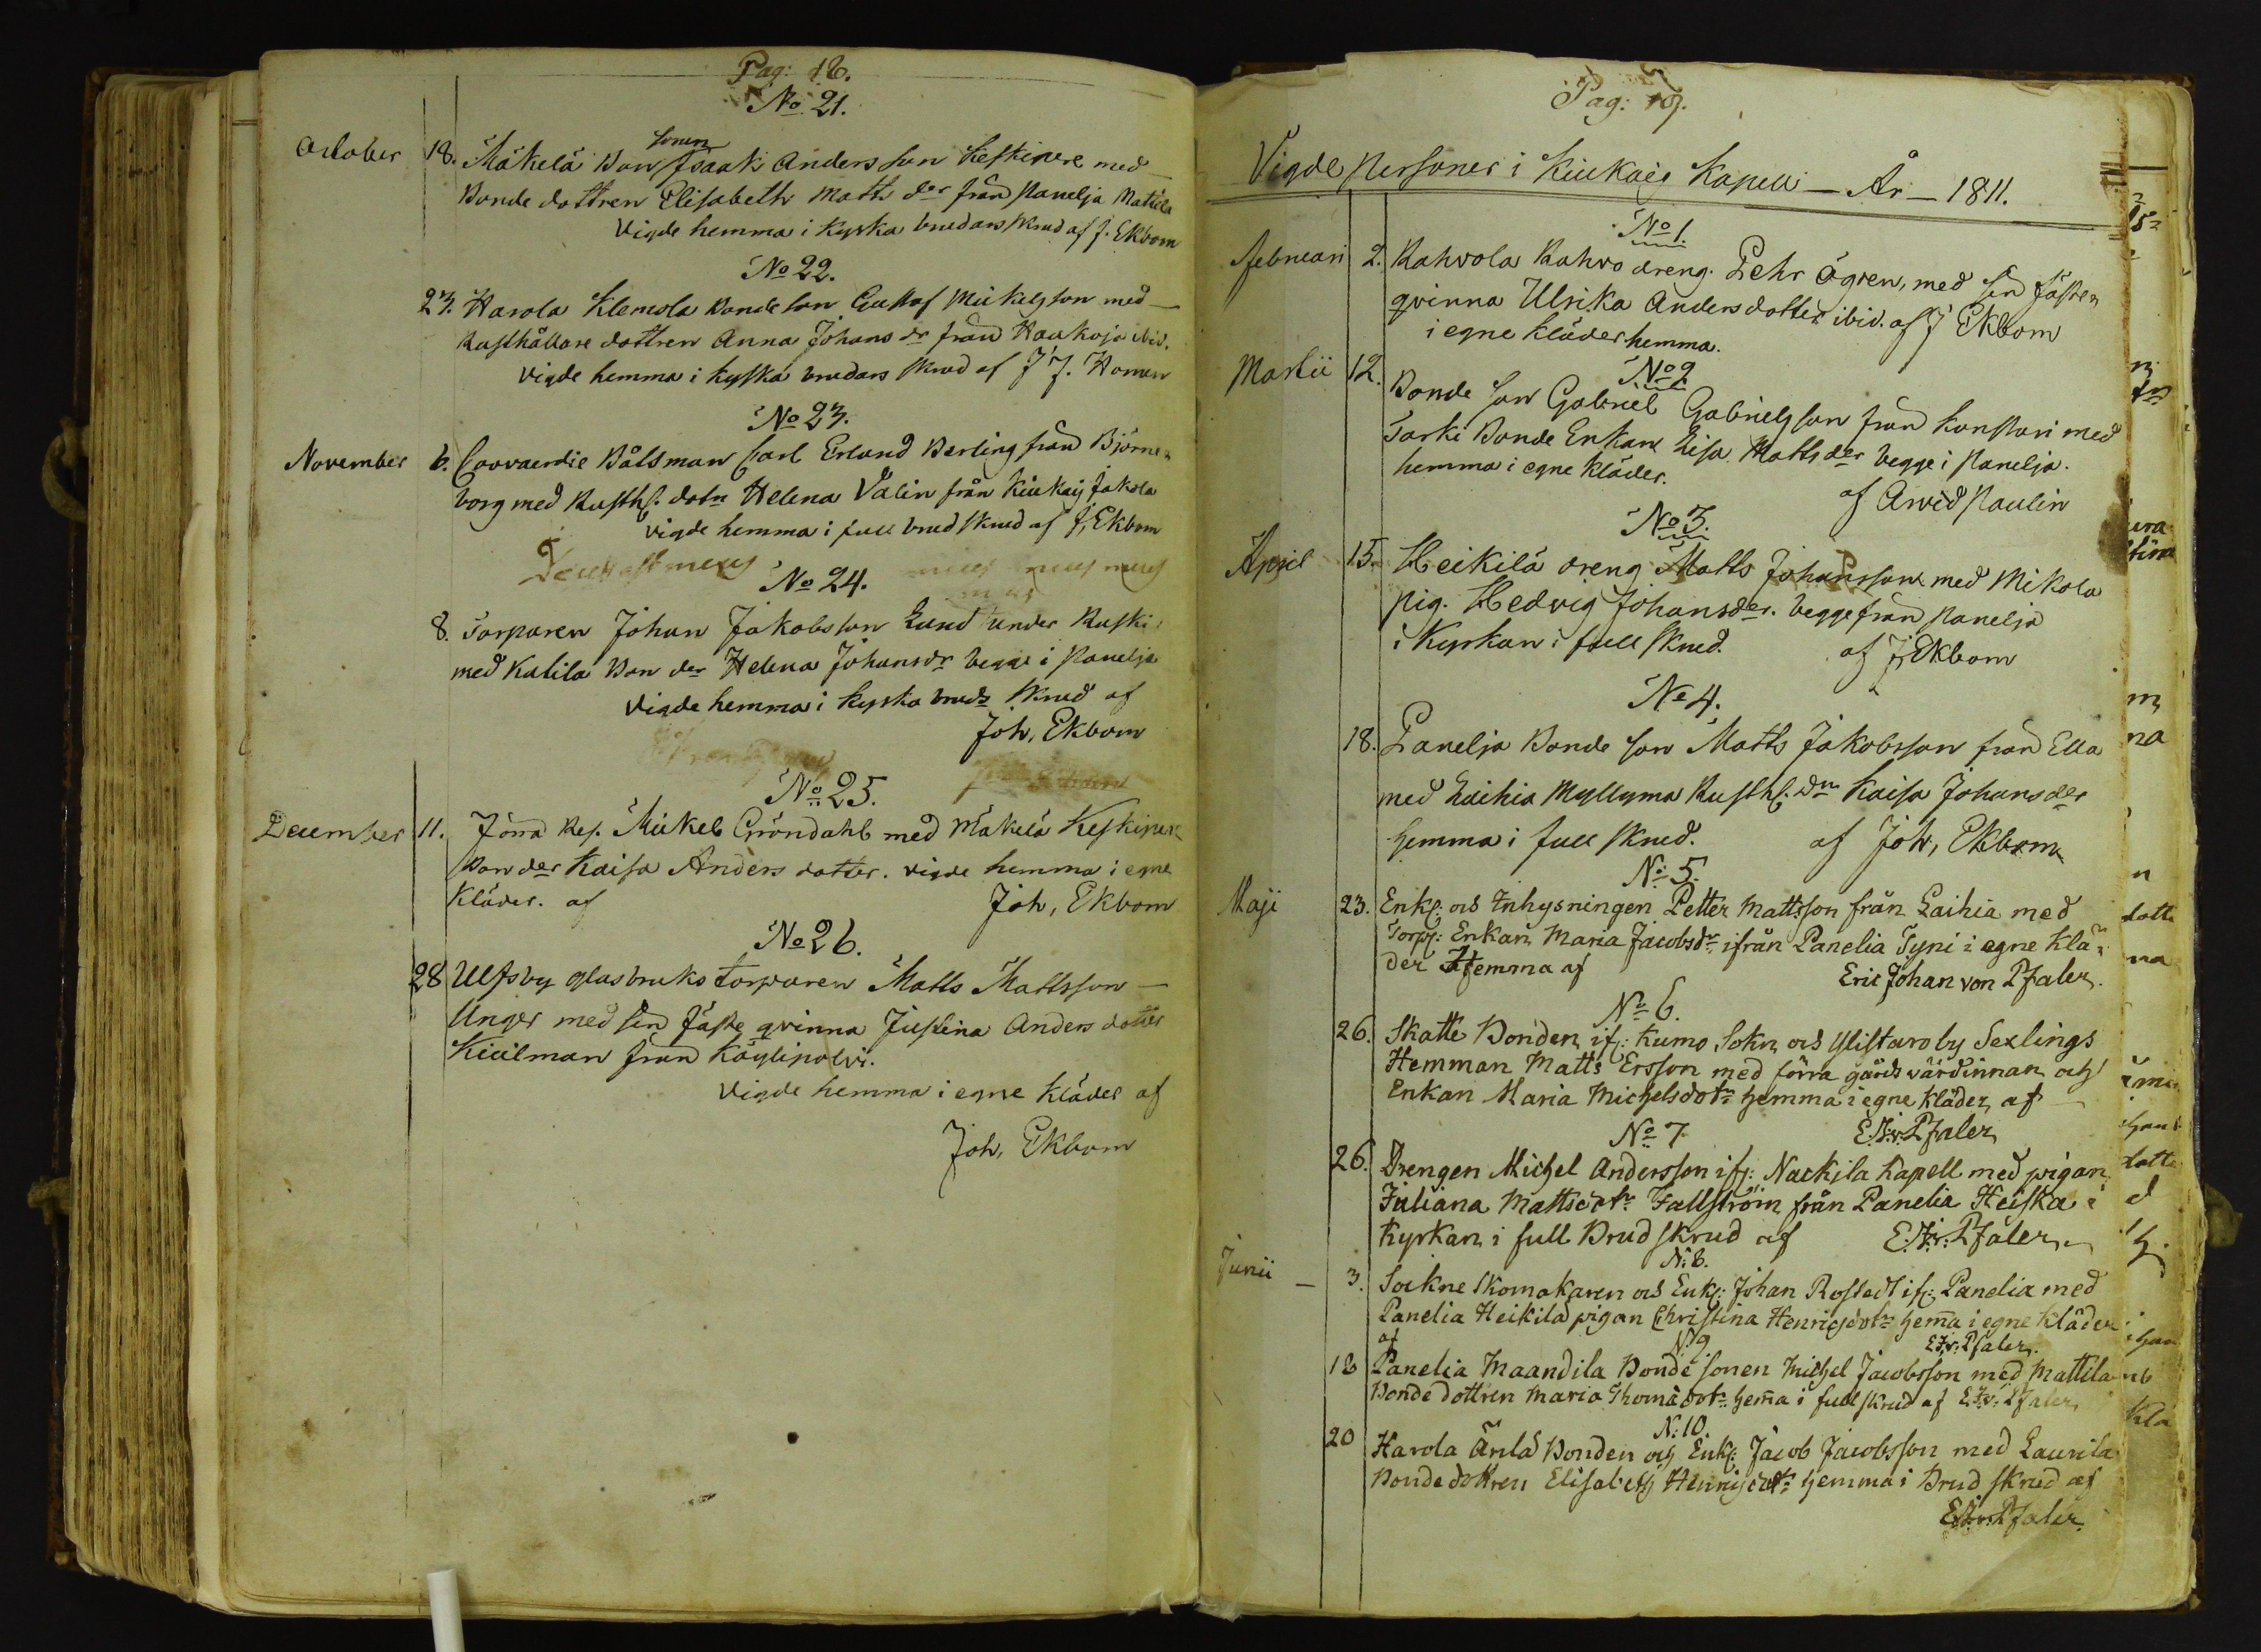 Pag: 18.
No 21.
October 18. Mäkelä Bon sonen Isaak Andersson Keskipere med
Bonde dottren Elisabeth Matts dr från Panelja Matila
Vigde hemma i kyska brudars skrud af J. Ekbom
No 22.
23. Harola Klemola Bonde son Gustaf Mickelsson med
Rusthållare dottren Anna Johans dr från Haukoja ibid.
vigde hemma i kyska brudars skrud af J J. Homen
No 23.
November 6. Coovaerdie Båtsman Carl Erland Berling från Björne-
borg med Rusth: dotn Helena Valin från Kiukais Jakola
vigde hemma i full brud skrud af J, Ekbom
No 24.
8. Torparen Johan Jakobsson Lund under Ruski
med Katila Bon dr Helena Johansdr begge i Panelja
vigde hemma i kyska bruds skrud af
Joh, Ekbom
No 25.
December 11. Förra Mickel Gröndahl med Mäkelä Keskipere
Bon der Kaisa Anders dotter. vigde hemma i egne
Kläder. af Joh, Ekbom
No 26.
28 Ulfsby glasbruks torparen Matts Mattsson
Unger med sin fäste qvinna Justina Anders dotter
Kiilman från Köylipolvi.
vigde hemma i egne kläder af
Joh, Ekbom
Pag: 19.
Vigde Personer i Kiukais Kapell — År — 1811.
No 1.
Februari 2. Rahvola Rahvo dreng. Pehr Ögren, med sin fäste
qvinna Ulrika Andersdotter ibid. af J Ekbom
i egne kläder hemma.
No 2
Martii 12. Bonde son Gabriel Gabrielsson från Konstari med
Torki Bonde Enkan Lisa Matts der begge i Panelja.
hemma i egne kläder. af Arvid Paulin
No 3.
April 15. Heikilä dreng Matts Johansson med Mikola
pig. Hedvig Johansder. begge från Panelja
i Kyrkan i full skrud. af J, Ekbom
No 4.
18. Panelja Bonde son Matts Jakobsson från Ella
med Laihia Myllyma Rusth: dn Kaisa Johansder
hemma i full skrud. af Joh, Ekbom
No 5.
Maji 23. Enkl: och Inhysningen Petter Mattsson från Laihia med
Torp: Enkan Maria Jacobsdr ifrån Panelia Tyni i egne Klä-
der Hemma af Eric Johan von Pfaler.
No 6.
26. Skatte Bonden if: Kumo Sokn och Ylistaro by Sexlings
Hemman Matts Ersson med förra gårds värdinnan och
Enkan Maria Michelsdotr hemma i egne kläder, af
E. J. v. Pfaler
No 7.
26. Drengen Michel Andersson if: Nackila Kapell med pigan
Juliana Mattsdotr Fallström från Panelia Heiska i
Kyrkan i full Brudskrud af E. J. v. Pfaler
N. 8.
Junii — 3. Sockne skomakaren och Enkl: Johan Rostedt if: Panelia med
Panelia Heikilä pigan Christina Henricsdotr hemma i egne Kläder
af E J. v. Pfaler.
N. 9
18 Panelia Maandila Bonde sonen Michel Jacobsson med Mattila
Bonde dottren Maria Thomædotr hemma i full skrud af E. J. v. Pfaler
N. 10.
20 Harola Änilä Bonden och Enkl: Jacob Jacobsson med Laurila
Bondedottren Elisabeth Henricsdotr hemma i Brud skrud af
E. J. v. Pfaler